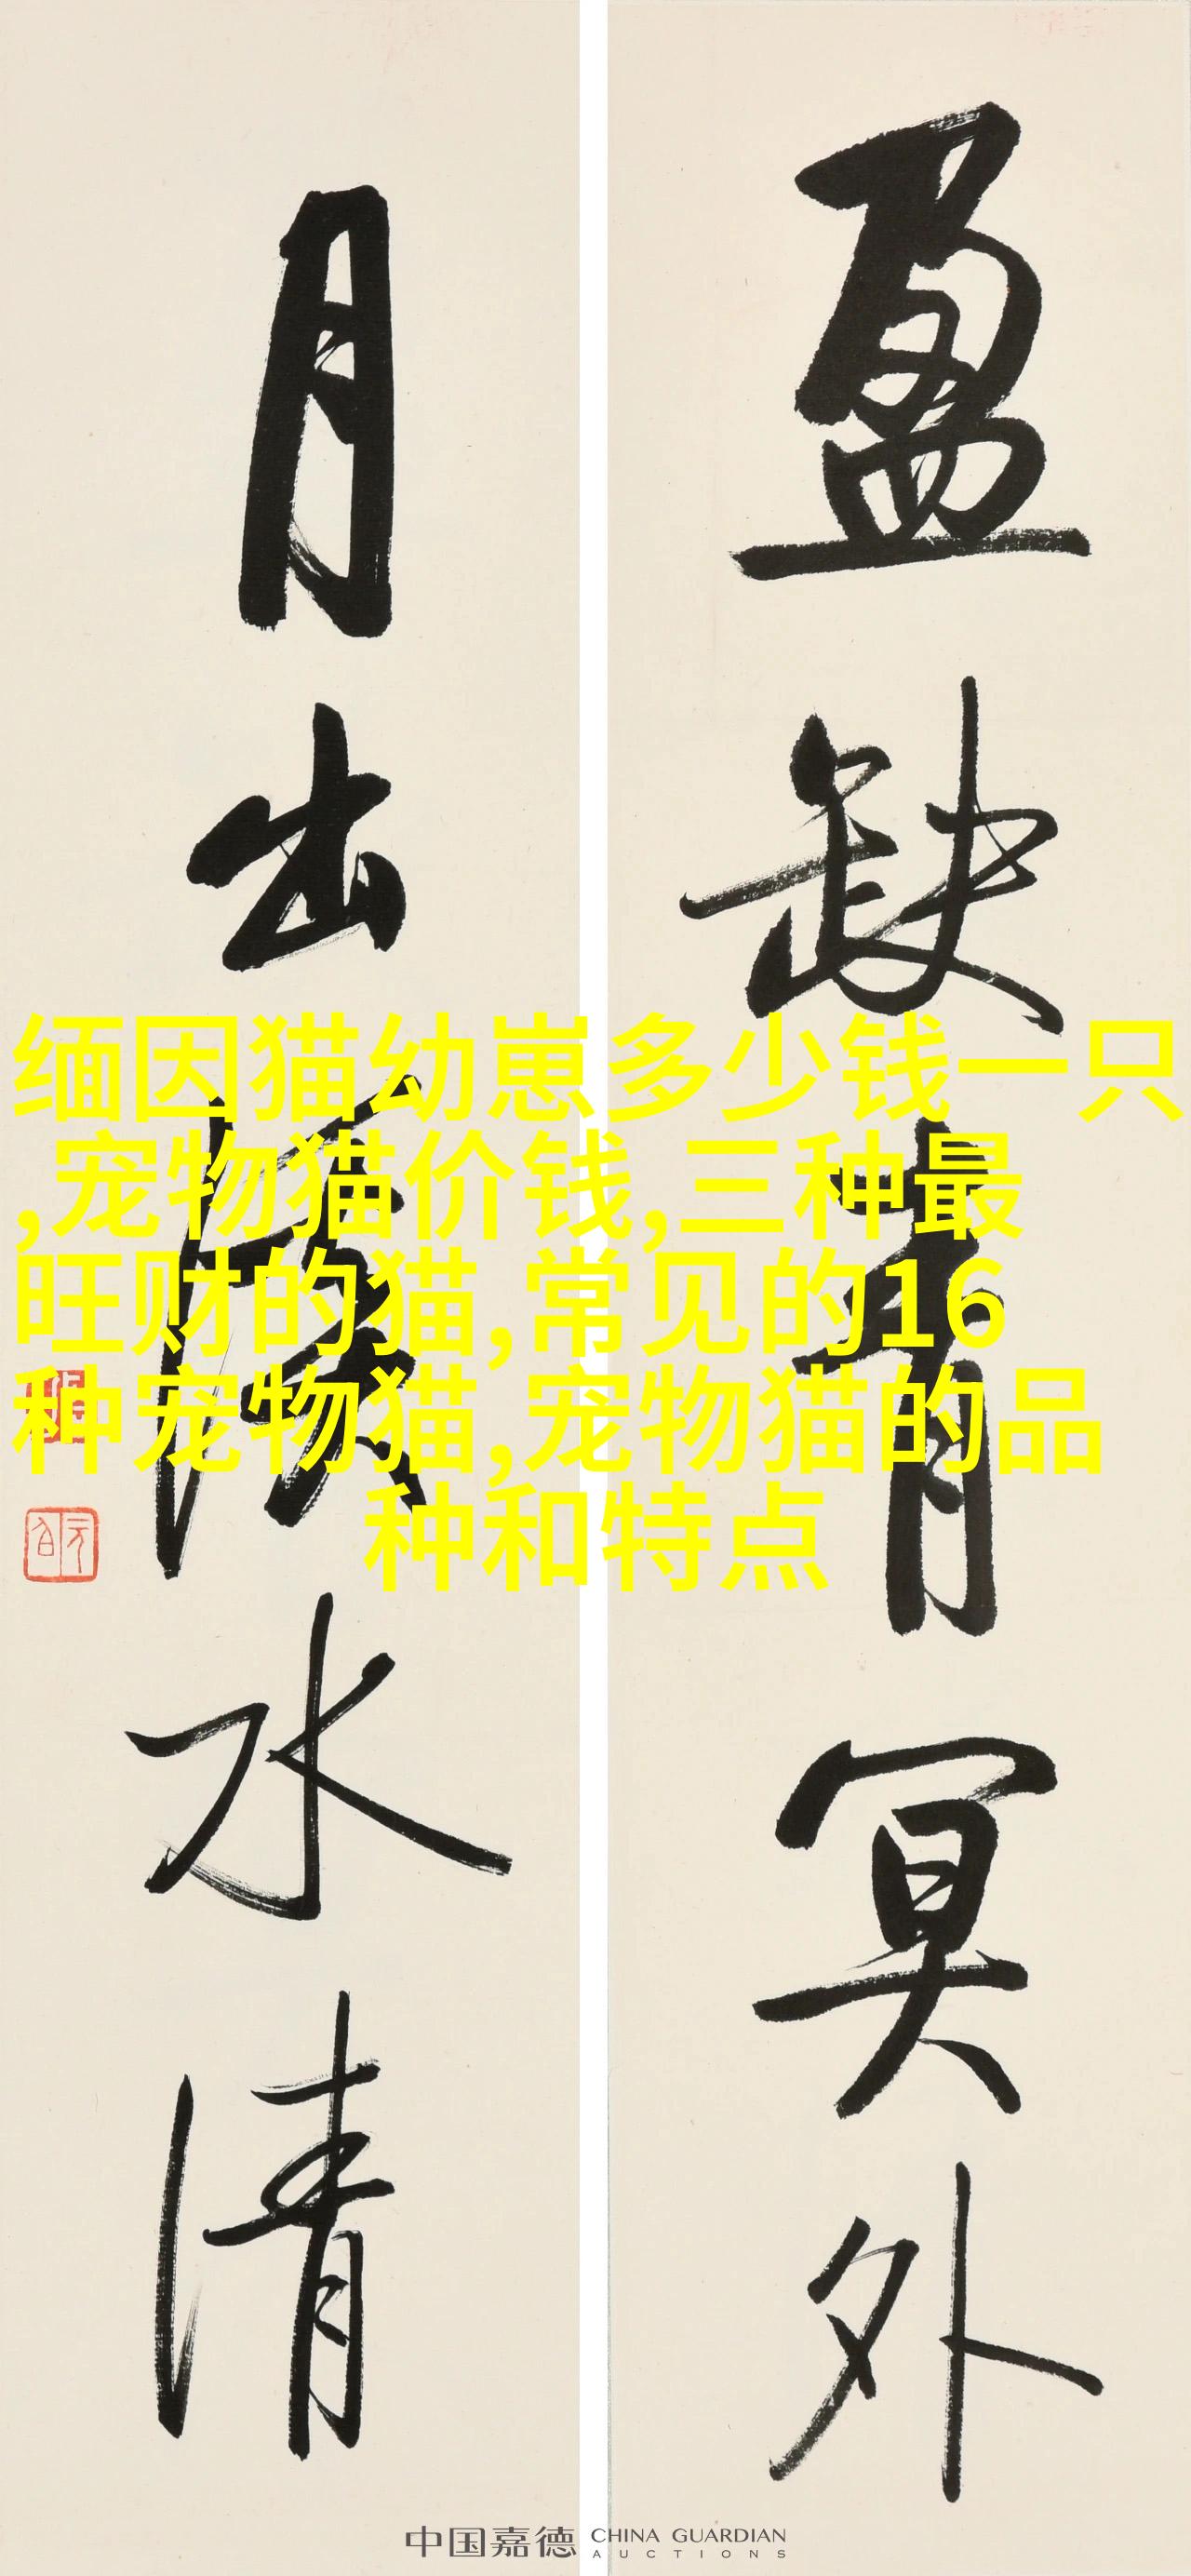 盈缺青冥外
月出水清
缅因猫幼崽多少钱一只
,宠物猫价钱,三种最
旺财的猫,常见的16
种宠物猫,宠物猫的品
种和特点
中国嘉德 CHINA GUARDIAN
AUCTIONS